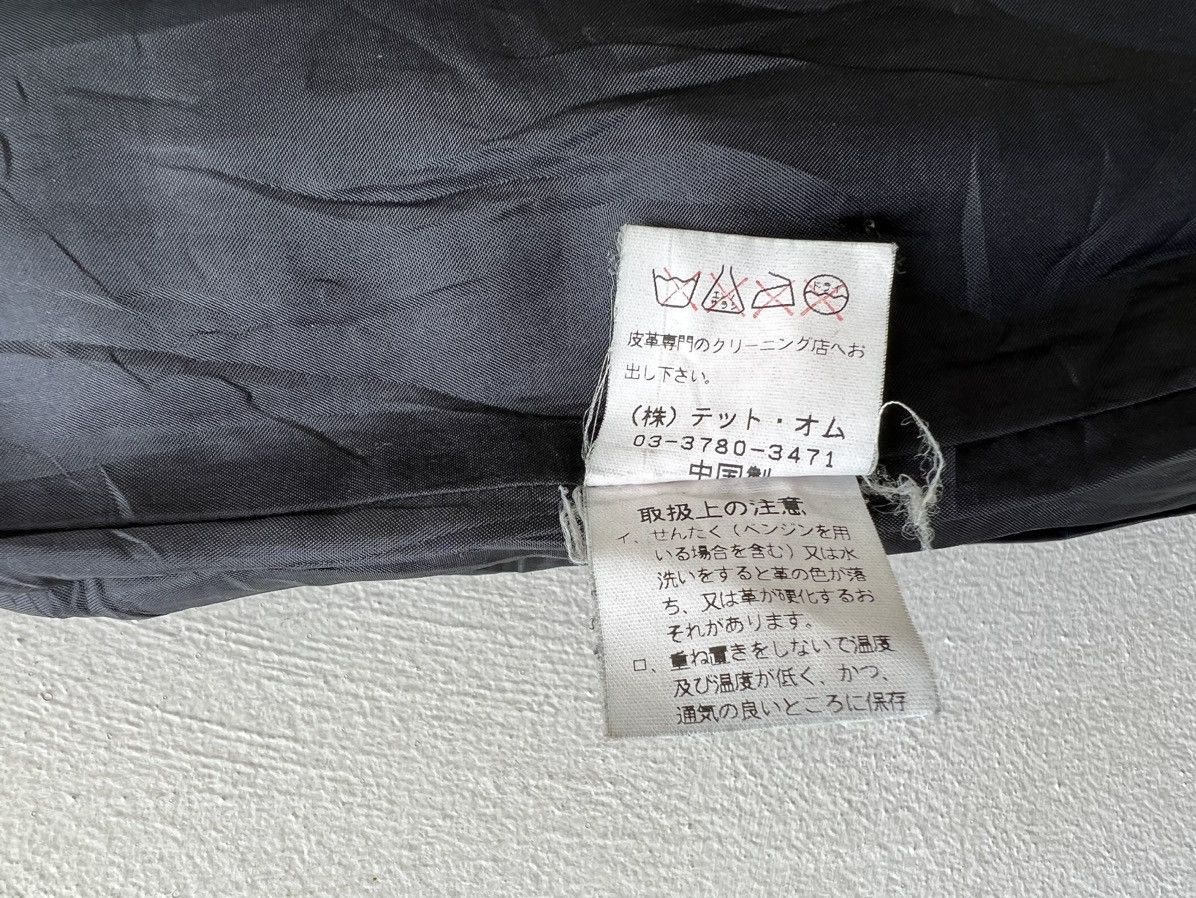 エンソ
サラシ
ドライ
皮革専門のクリーニング店へお
出し下さい。
(株)テット・オム
03-3780-3471
中国製
取扱上の注意
イ、せんたく(ベンジンを用
いる場合を含む)又は水
洗いをすると革の色が落
ち、又は革が硬化するお
それがあります。
ロ、重ね置きをしないで温度
及び温度が低く、かつ、
通気の良いところに保存